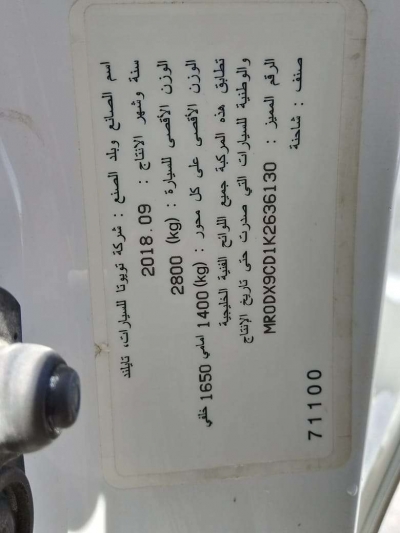 اسم الصانع وبلد الصنع : شركة تويوتا للسيارات، تايلند
سنة وشهر الانتاج : 2018.09
الوزن الأقصى للسيارة : 2800 (kg)
الوزن الأقصى على كل محور : (kg) 1400 امامي 1650 خلفي
تطابق هذه المركبة جميع اللوائح الفنية الخليجية
والوطنية للسيارات التي صدرت حتى تاريخ الإنتاج
الرقم المميز : MR0DX9CD1K2636130
صنف : شاحنة
71100